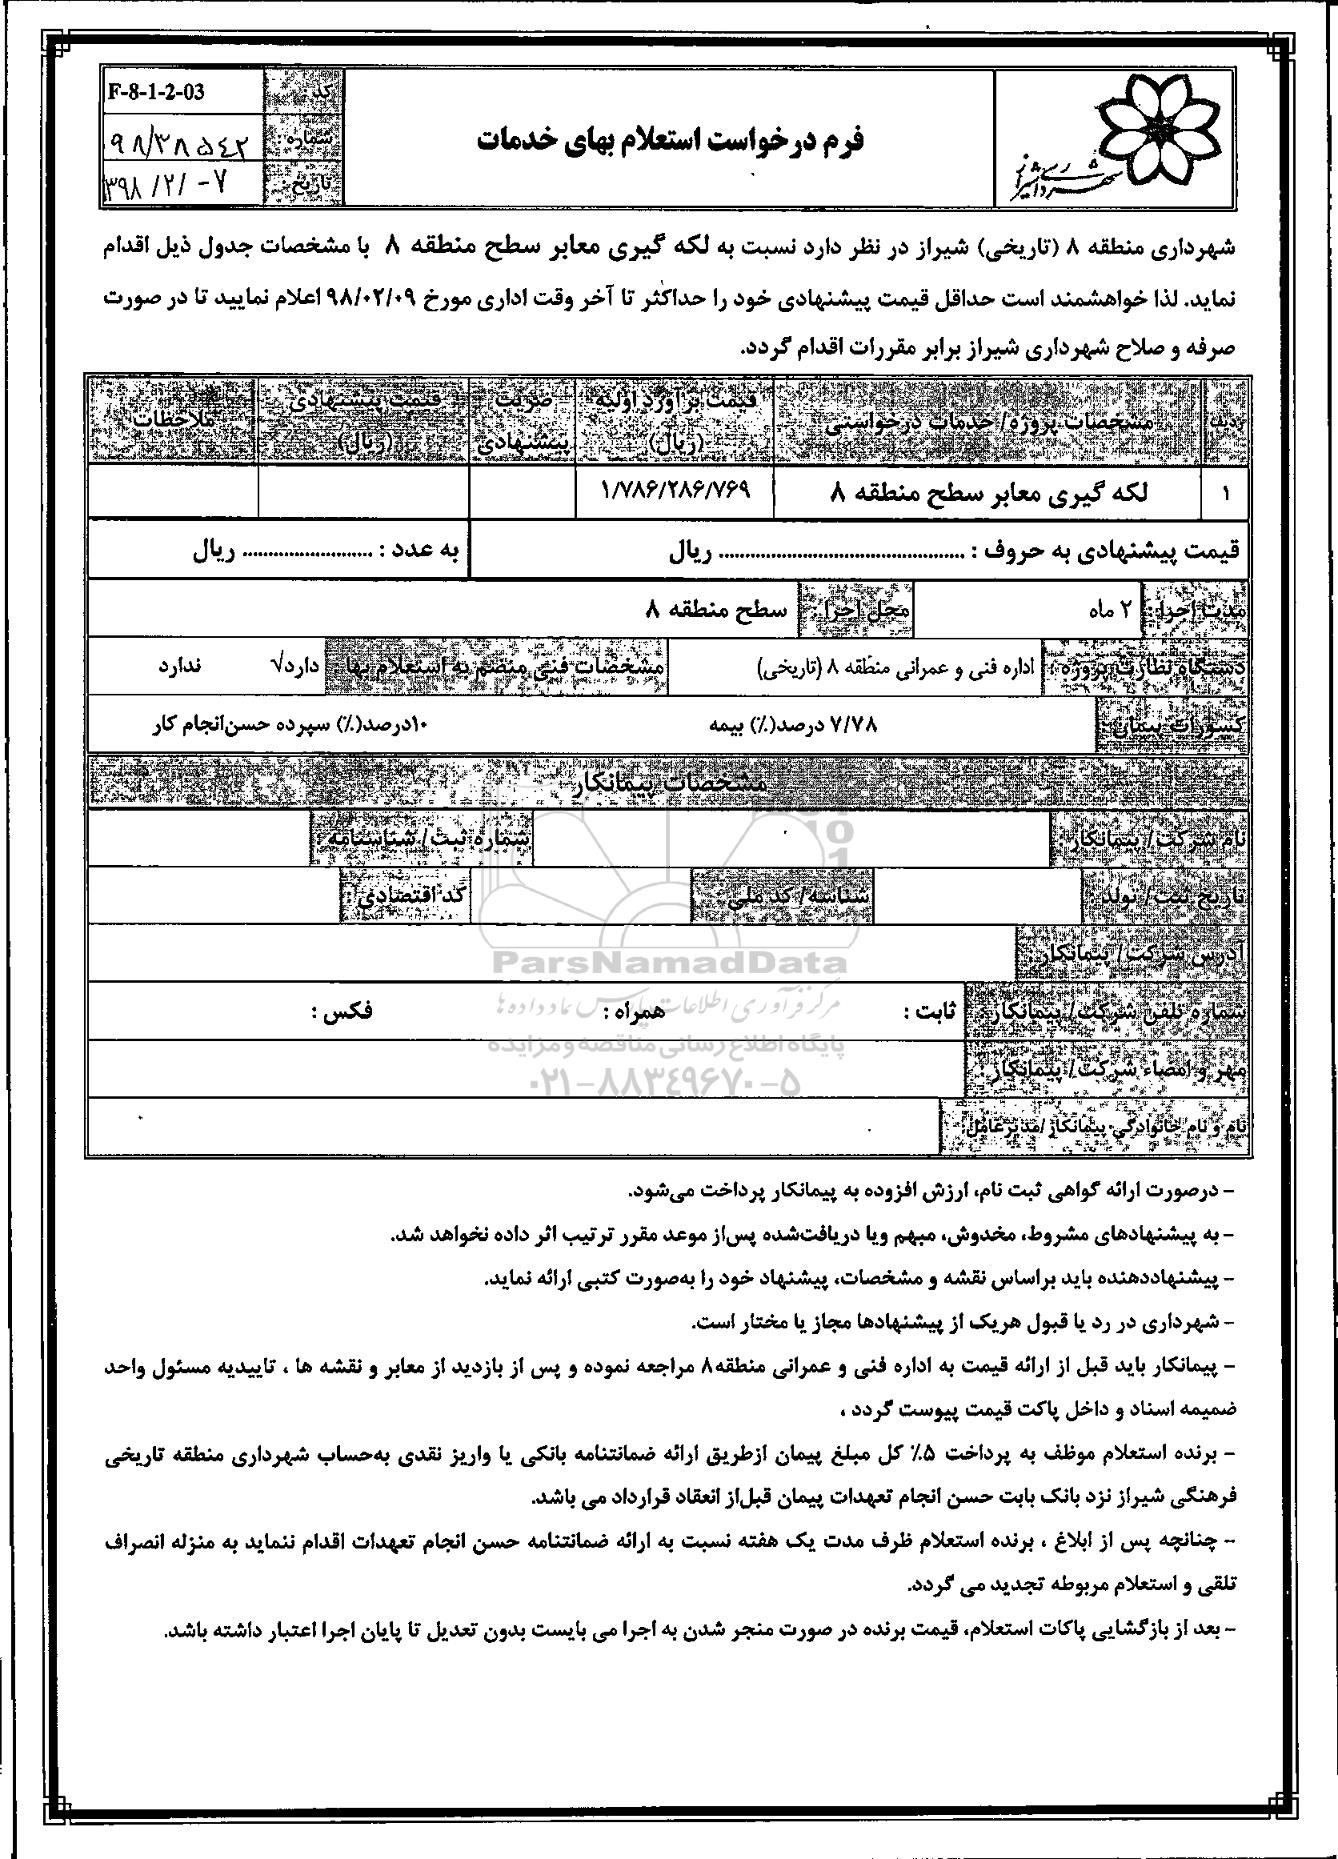 شهرداری شیراز
فرم درخواست استعلام بهای خدمات
کد : F-8-1-2-03
شماره : ۹۸/۳۸۵۴۲
تاریخ : ۳۹۸/۲/۰۷
شهرداری منطقه ۸ (تاریخی) شیراز در نظر دارد نسبت به لکه گیری معابر سطح منطقه ۸ با مشخصات جدول ذیل اقدام
نماید. لذا خواهشمند است حداقل قیمت پیشنهادی خود را حداکثر تا آخر وقت اداری مورخ ۹۸/۰۲/۰۹ اعلام نمایید تا در صورت
صرفه و صلاح شهرداری شیراز برابر مقررات اقدام گردد.
ردیف مشخصات پروژه/ خدمات درخواستی قیمت برآورد اولیه (ریال) ضریب پیشنهادی قیمت پیشنهادی (ریال) ملاحظات
۱ لکه گیری معابر سطح منطقه ۸ ۱/۷۸۶/۲۸۶/۷۶۹
قیمت پیشنهادی به حروف : ............................................... ریال به عدد : ......................... ریال
مدت اجرا : ۲ ماه محل اجرا : سطح منطقه ۸
دستگاه نظارت پروژه : اداره فنی و عمرانی منطقه ۸ (تاریخی) مشخصات فنی منضم به استعلام بها دارد√ ندارد
کسورات پیمان : ۷/۷۸ درصد(٪) بیمه ۱۰درصد(٪) سپرده حسن‌انجام کار
مشخصات پیمانکار
نام شرکت/ پیمانکار : شماره ثبت/ شناسنامه :
تاریخ ثبت/ تولد : شناسه/ کد ملی : کد اقتصادی :
آدرس شرکت/ پیمانکار :
ParsNamadData
شماره تلفن شرکت/ پیمانکار : ثابت : همراه : فکس :
مرکز فرآوری اطلاعات پارس نماد داده ها
پایگاه اطلاع رسانی مناقصه و مزایده
مهر و امضاء شرکت/ پیمانکار :
۰۲۱-۸۸۳۴۹۶۷۰-۵
نام و نام خانوادگی پیمانکار/مدیرعامل:
- درصورت ارائه گواهی ثبت نام، ارزش افزوده به پیمانکار پرداخت می‌شود.
- به پیشنهادهای مشروط، مخدوش، مبهم ویا دریافت‌شده پس‌از موعد مقرر ترتیب اثر داده نخواهد شد.
- پیشنهاددهنده باید براساس نقشه و مشخصات، پیشنهاد خود را به‌صورت کتبی ارائه نماید.
- شهرداری در رد یا قبول هریک از پیشنهادها مجاز یا مختار است.
- پیمانکار باید قبل از ارائه قیمت به اداره فنی و عمرانی منطقه۸ مراجعه نموده و پس از بازدید از معابر و نقشه ها ، تاییدیه مسئول واحد
ضمیمه اسناد و داخل پاکت قیمت پیوست گردد ،
- برنده استعلام موظف به پرداخت ۵٪ کل مبلغ پیمان ازطریق ارائه ضمانتنامه بانکی یا واریز نقدی به‌حساب شهرداری منطقه تاریخی
فرهنگی شیراز نزد بانک بابت حسن انجام تعهدات پیمان قبل‌از انعقاد قرارداد می باشد.
- چنانچه پس از ابلاغ ، برنده استعلام ظرف مدت یک هفته نسبت به ارائه ضمانتنامه حسن انجام تعهدات اقدام ننماید به منزله انصراف
تلقی و استعلام مربوطه تجدید می گردد.
- بعد از بازگشایی پاکات استعلام، قیمت برنده در صورت منجر شدن به اجرا می بایست بدون تعدیل تا پایان اجرا اعتبار داشته باشد.